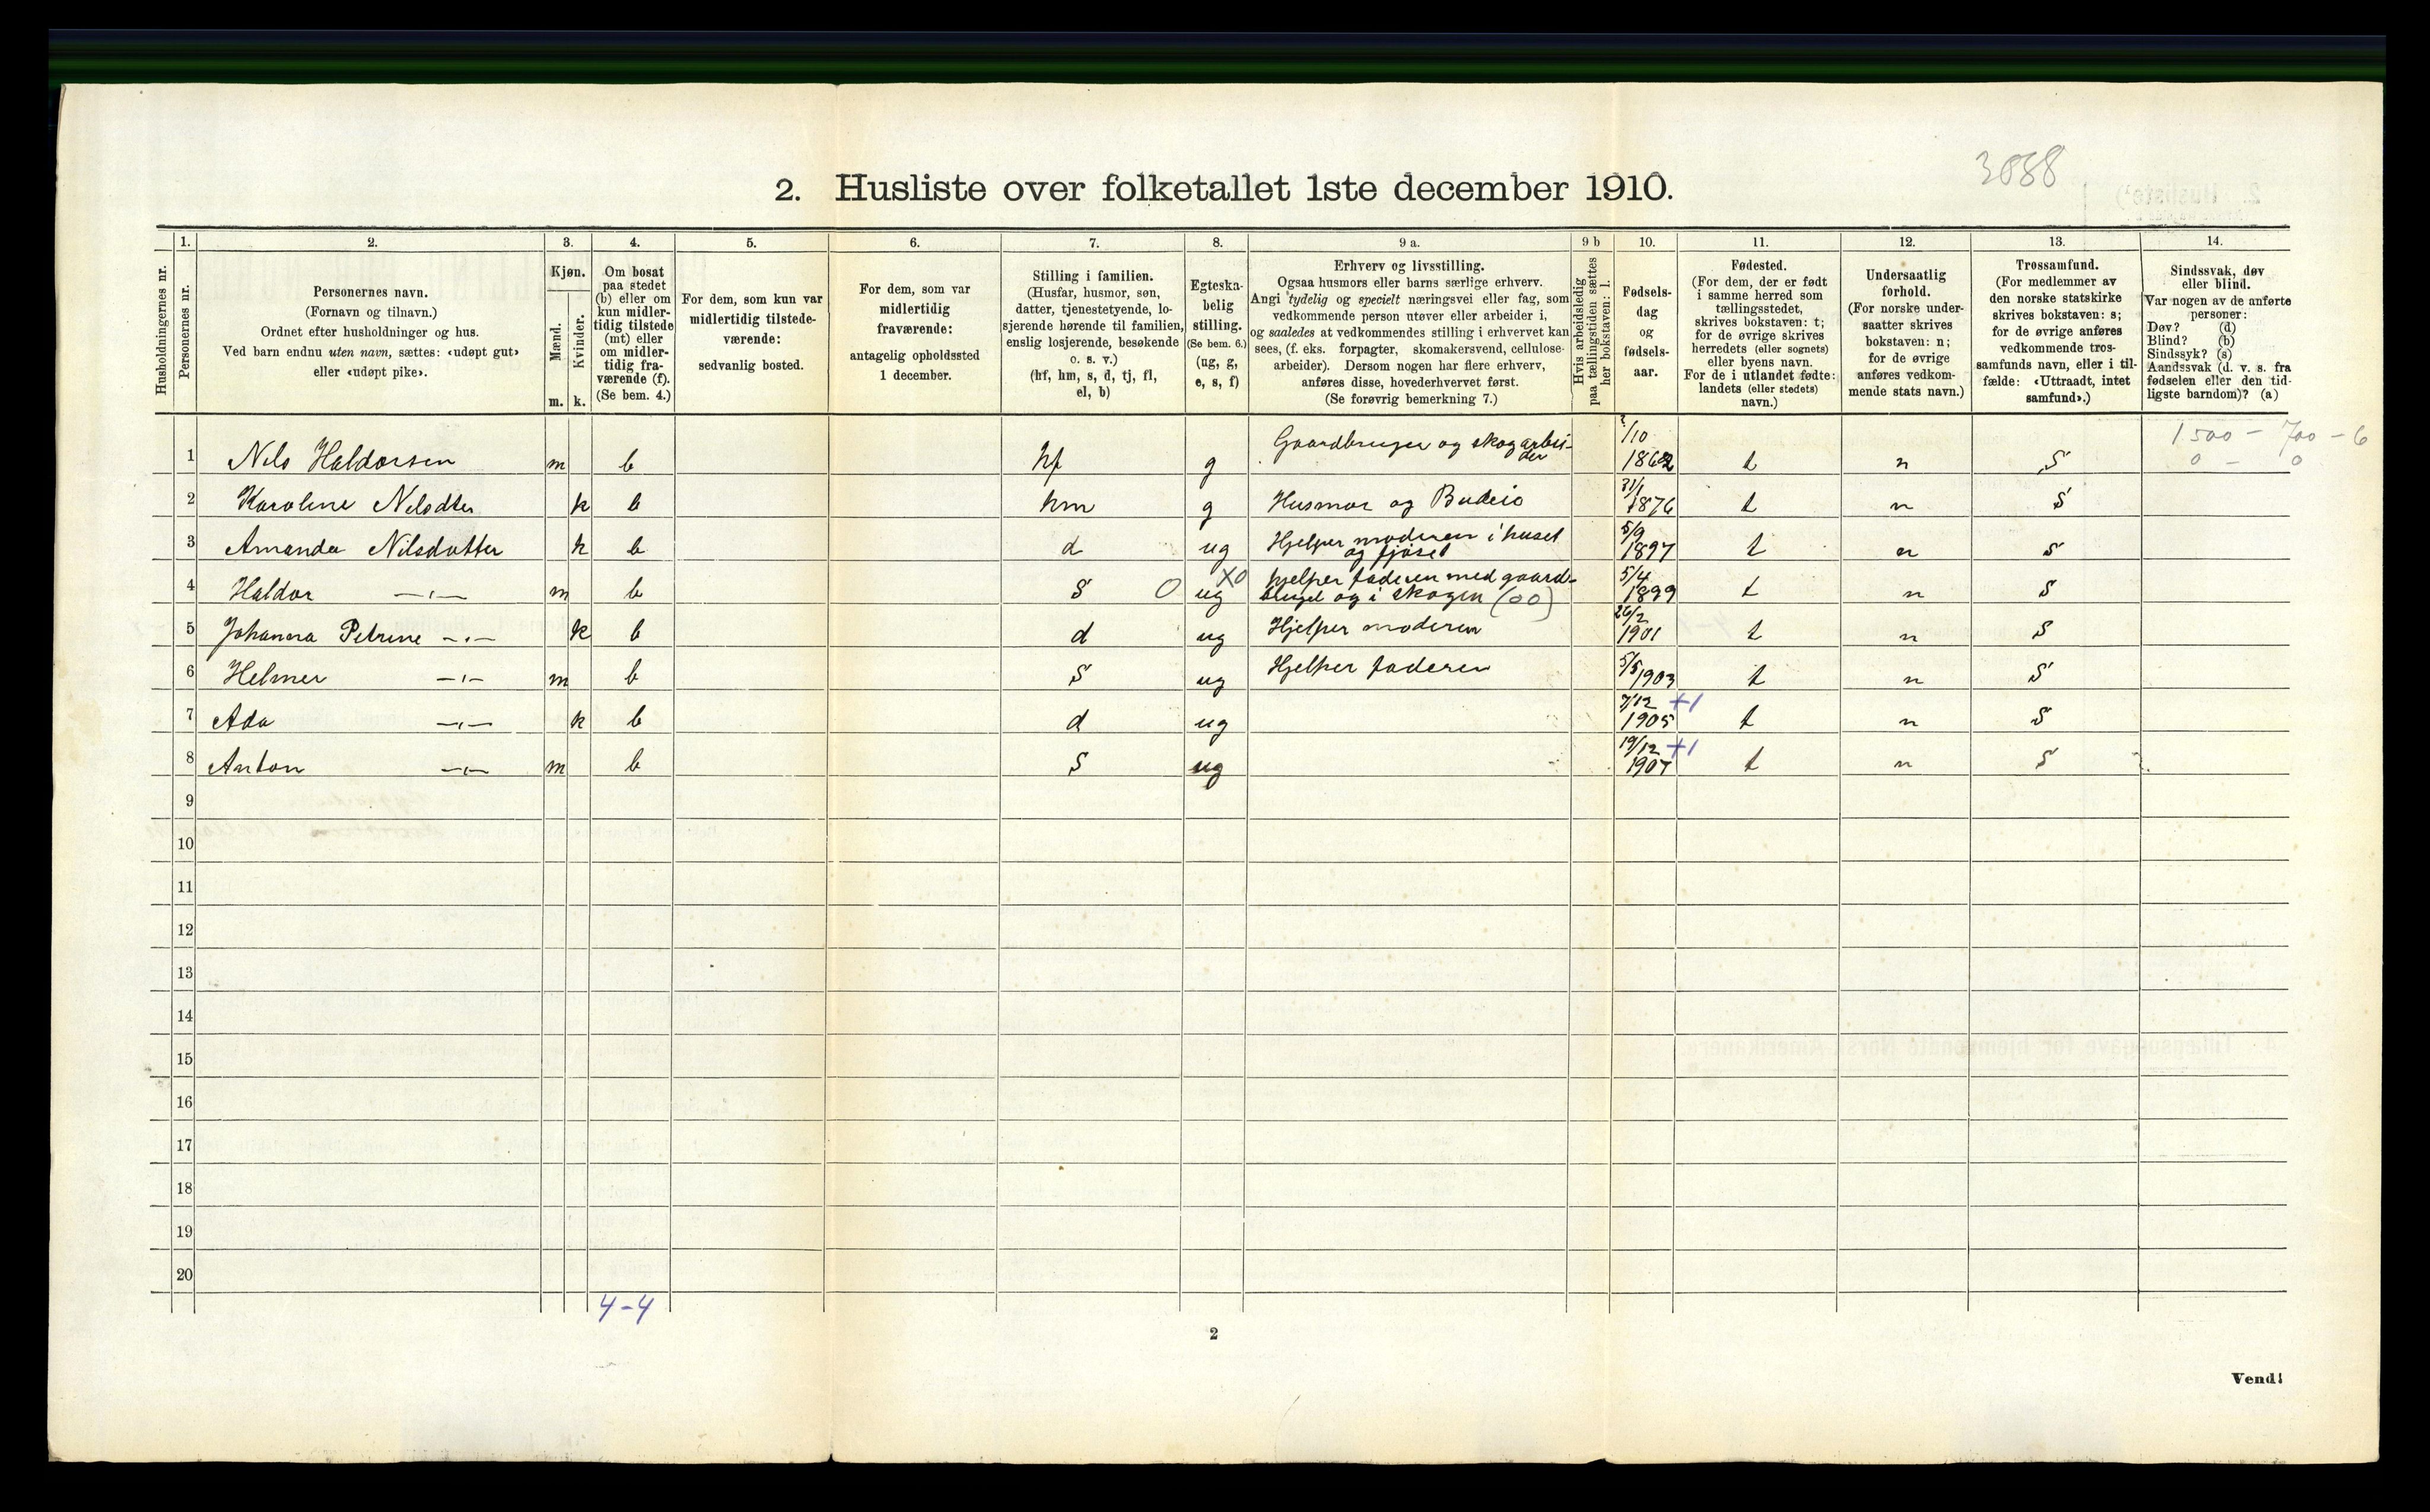 3088
2. Husliste over folketallet 1ste december 1910.
Husholdningernes nr.
1.
Personernes nr.
2.
Personernes navn.
(Fornavn og tilnavn.)
Ordnet efter husholdninger og hus.
Ved barn endnu uten navn, sættes: «udøpt gut»
eller «udøpt pike».
3.
Kjøn.
Mænd.
Kvinder.
m. k.
4.
Om bosat
paa stedet
(b) eller om
kun midler-
tidig tilstede
(mt) eller
om midler-
tidig fra-
værende (f).
(Se bem. 4.)
5.
For dem, som kun var
midlertidig tilstede-
værende:
sedvanlig bosted.
6.
For dem, som var
midlertidig
fraværende:
antagelig opholdssted
1 december.
7.
Stilling i familien.
(Husfar, husmor, søn,
datter, tjenestetyende, lo-
sjerende hørende til familien,
enslig losjerende, besøkende
o. s. v.)
(hf, hm, s, d, tj, fl,
el, b)
8.
Egteska-
belig
stilling.
(Se bem. 6.)
(ug, g,
e, s, f)
9 a.
Erhverv og livsstilling.
Ogsaa husmors eller barns særlige erhverv.
Angi tydelig og specielt næringsvei eller fag, som
vedkommende person utøver eller arbeider i,
og saaledes at vedkommendes stilling i erhvervet kan
sees, (f. eks. forpagter, skomakersvend, cellulose-
arbeider). Dersom nogen har flere erhverv,
anføres disse, hovederhvervet først.
(Se forøvrig bemerkning 7.)
9 b
Hvis arbeidsledig
paa tællingstiden sættes
her bokstaven: l.
10.
Fødsels-
dag
og
fødsels-
aar.
11.
Fødested.
(For dem, der er født
i samme herred som
tællingsstedet,
skrives bokstaven: t;
for de øvrige skrives
herredets (eller sognets)
eller byens navn.
For de i utlandet fødte:
landets (eller stedets)
navn.)
12.
Undersaatlig
forhold.
(For norske under-
saatter skrives
bokstaven: n;
for de øvrige
anføres vedkom-
mende stats navn.)
13.
Trossamfund.
(For medlemmer av
den norske statskirke
skrives bokstaven: s;
for de øvrige anføres
vedkommende tros-
samfunds navn, eller i til-
fælde: «Uttraadt, intet
samfund».)
14.
Sindssvak, døv
eller blind.
Var nogen av de anførte
personer:
Døv? (d)
Blind? (b)
Sindssyk? (s)
Aandssvak (d. v. s. fra
fødselen eller den tid-
ligste barndom)? (a)
1 Nils Haldorsen m b hf g Gaardbruger og skogarbei-der /10 1862 t n S 1500 - 700 - 6
0 - 0
2 Karoline Nilsdter k b hm g Husmor og Budeie 31/1 1876 t n S
3 Amanda Nilsdatter k b d ug Hjelper moderen i huset og fjøset 5/9 1897 t n S
4 Haldor -"- m b S 0 ug X0 hjelper faderen med gaard-bruget og i skogen (00) 5/4 1899 t n S
5 Johanna Petrine -"- k b d ug Hjelper moderen 26/2 1901 t n S
6 Helmer -"- m b S ug Hjelper faderen 5/5 1903 t n S
7 Ada -"- k b d ug 7/12 +1 1905 t n S
8 Anton -"- m b S ug 19/12 +1 1907 t n S
9
10
11
12
13
14
15
16
17
18
19
20
4-4
2
Vend!